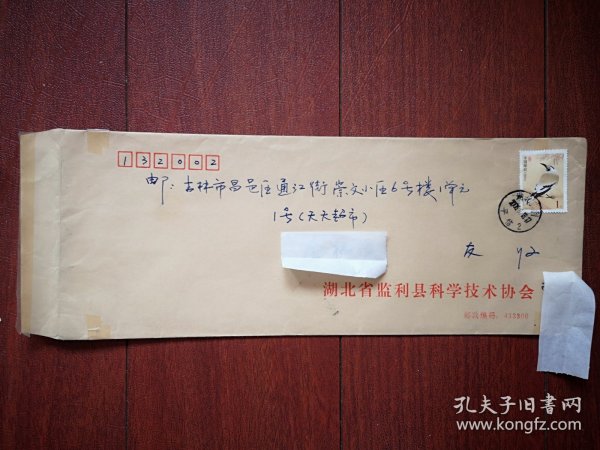 132002
邮：吉林市昌邑区通江街崇文小区6号楼1单元
1号(天天超市)
友 收
湖北省监利县科学技术协会
邮政编码：433300
孔夫子旧书网
www.kongfz.com